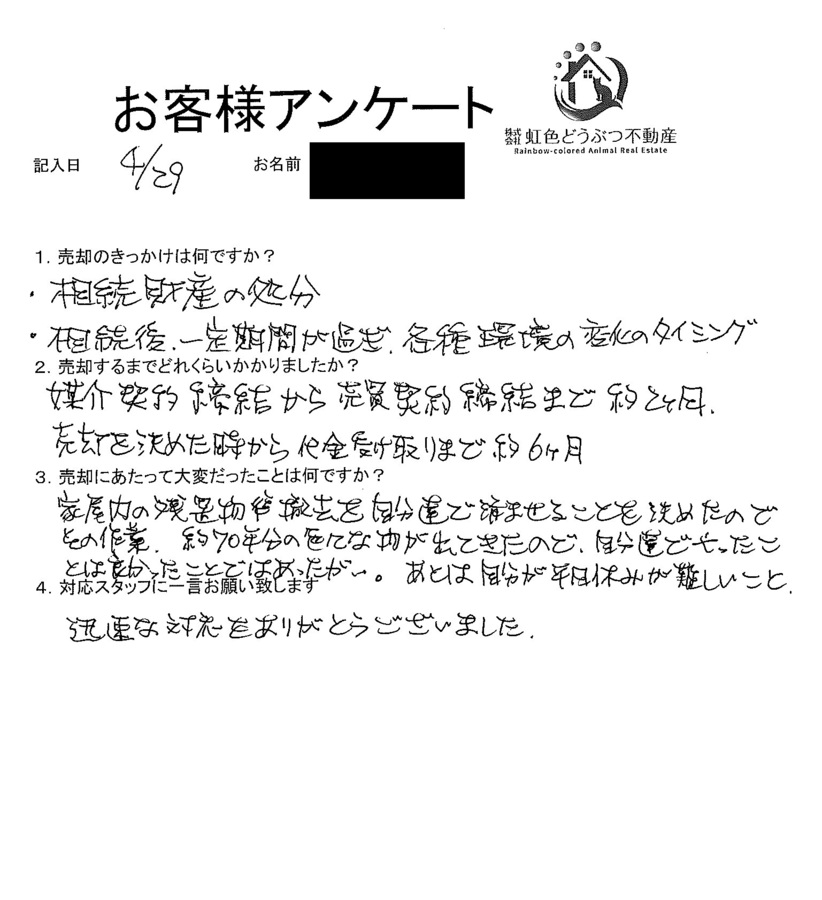 お客様アンケート
株式会社 虹色どうぶつ不動産
Rainbow-colored Animal Real Estate
記入日 4/29 お名前
1. 売却のきっかけは何ですか？
・相続財産の処分
・相続後、一定期間が過ぎ、各種環境の変化のタイミング
2. 売却するまでどれくらいかかりましたか？
媒介契約締結から売買契約締結まで約2ヶ月.
売却を決めた時から代金受け取りまで約6ヶ月
3. 売却にあたって大変だったことは何ですか？
家屋内の残置物 撤去を自分達で済ませることを決めたので
その作業. 約70年分の色んな物が出てきたので、自分達でやったこ
とは良かったことではあったが…。あとは自分が平日休みが難しいこと.
4. 対応スタッフに一言お願い致します
迅速な対応をありがとうございました.